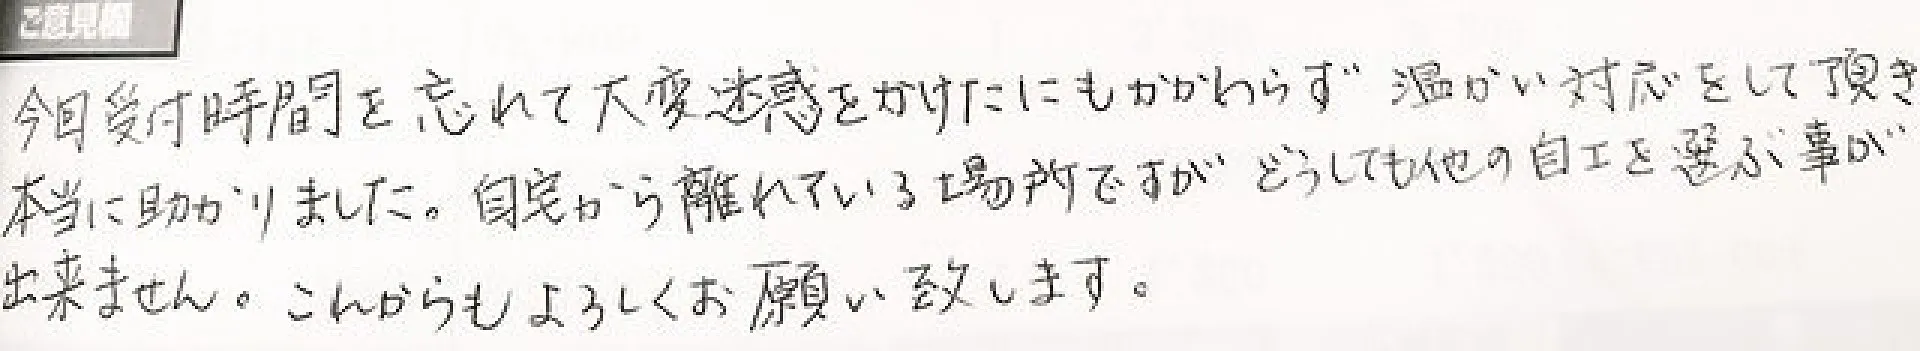 ご意見欄
今回受付時間を忘れて大変迷惑をかけたにもかかわらず 温かい対応をして頂き
本当に助かりました。自宅から離れている場所ですが どうしても他の自工を選ぶ事が
出来ません。これからもよろしくお願い致します。